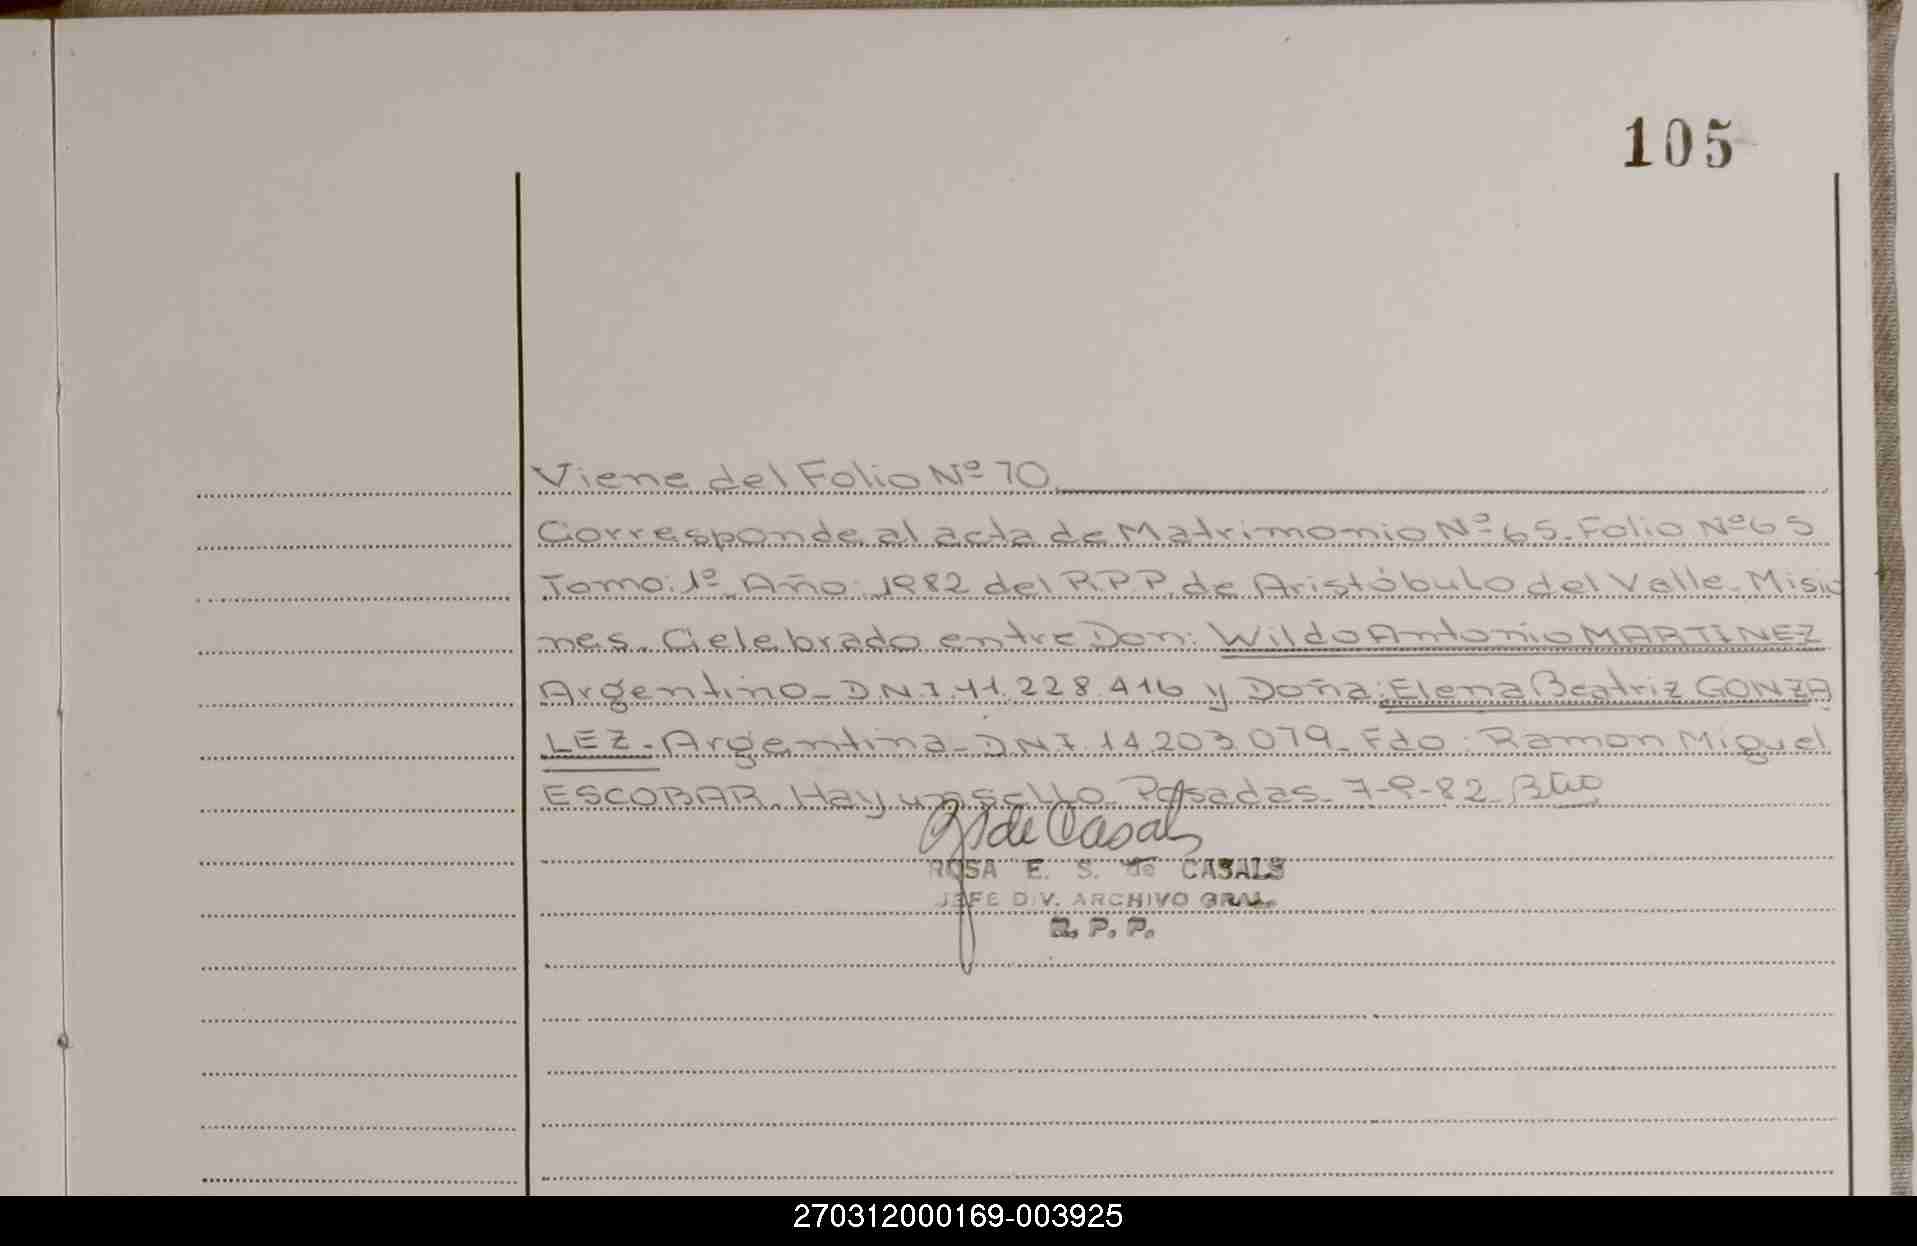 105
Viene del Folio Nº 70
Corresponde al acta de Matrimonio Nº 65. Folio Nº 65
Tomo: 1º Año: 1982 del R.P.P. de Aristóbulo del Valle. Misio
nes. Celebrado entre Don: Wildo Antonio MARTINEZ
Argentino - D.N.I. 11.228.416 y Doña: Elena Beatriz GONZA
LEZ. Argentina - DNI. 14.203.079. Fdo: Ramon Miguel
ESCOBAR. Hay un sello. Posadas. 7-9-82
R S de Casals
ROSA E. S. de CASALS
JEFE DIV. ARCHIVO GRAL.
R. P. P.
270312000169-003925